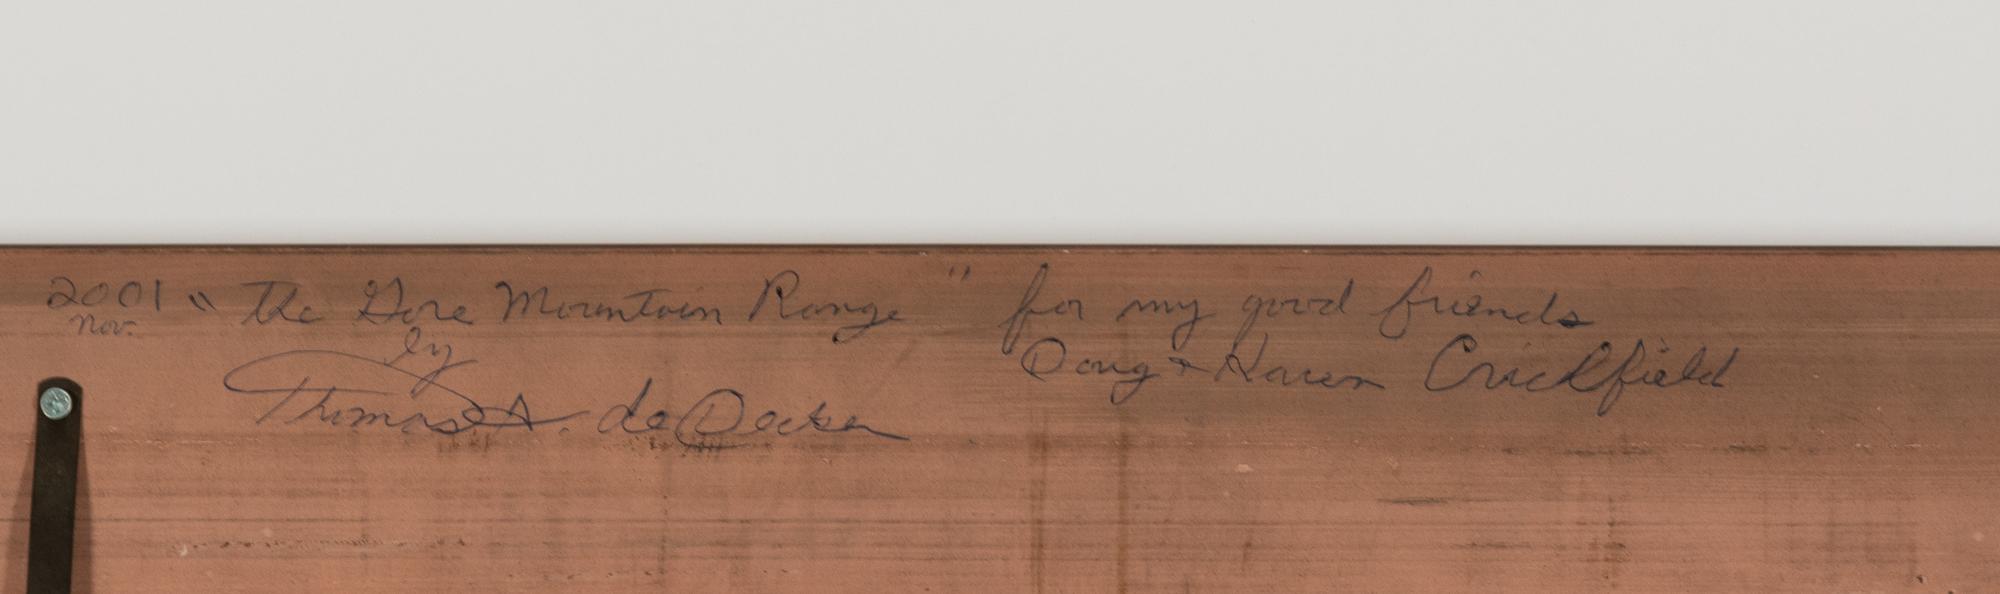 2001 "The Gore Mountain Range" for my good friends
Nov.
by
Doug & Karen Crickfield
Thomas A. deDecker